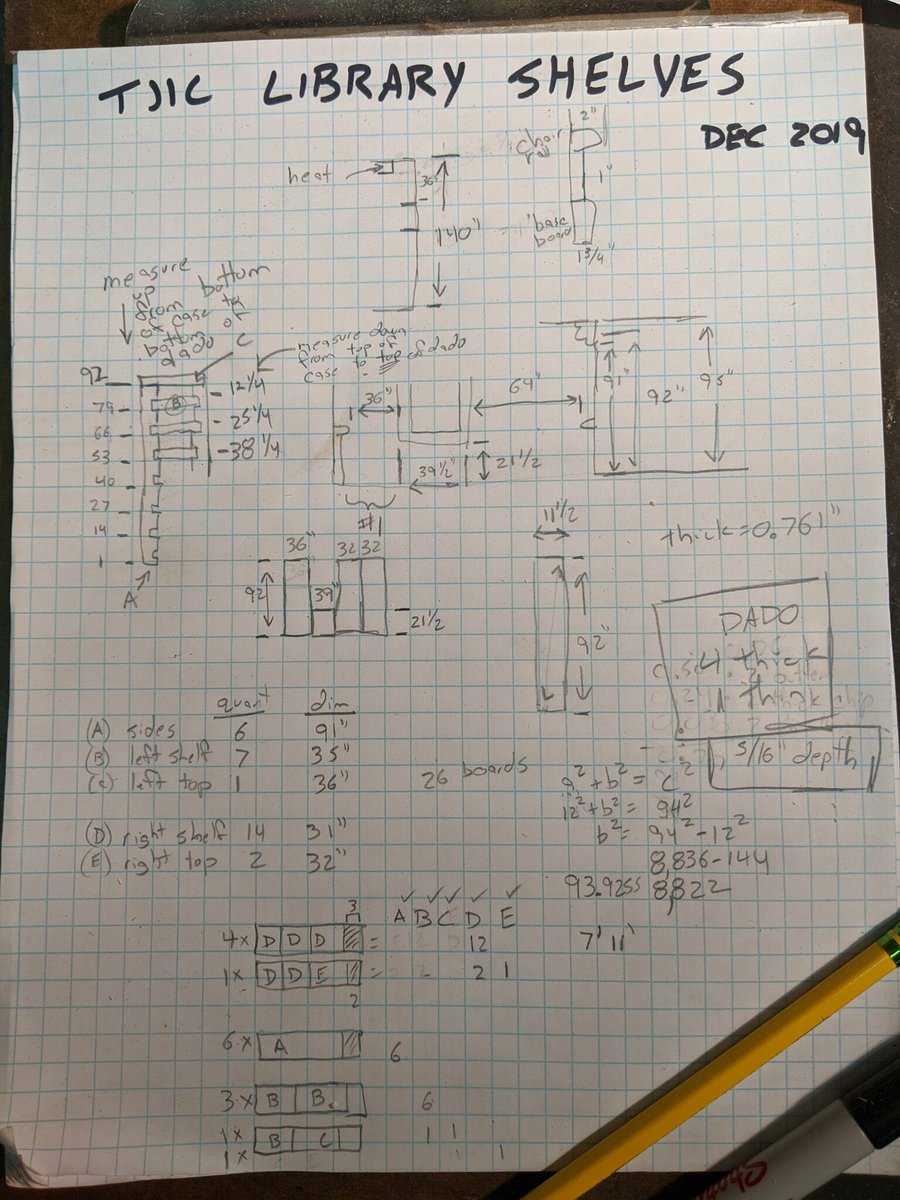 TJIC LIBRARY SHELVES
DEC 2019
heat
36"
140"
2"
chair
rail
1"
base
board
1 3/4"
measure
up
from
bottom
of case
to
bottom
of
dado
C
measure down
from top of
case to top of dado
92
79
66
53
40
27
14
1
B
A
- 12 1/4
- 25 1/4
- 38 1/4
36"
69"
39 1/2"
21 1/2
#1
91"
92"
95"
36"
32 32
92
39"
21 1/2
11 1/2
92"
thick = 0.761"
DADO
thick
thick
5/16" depth
quant dim
(A) sides 6 91"
(B) left shelf 7 35"
(C) left top 1 36"
26 boards
(D) right shelf 14 31"
(E) right top 2 32"
a² + b² = c²
12² + b² = 94²
b² = 94² - 12²
8,836 - 144
93.9255 8,822
7' 11"
3
A B C D E
4 x D D D = 12
1 x D D E = 2 1
2
6 x A 6
3 x B B 6
1 x B C 1 1
1 x 1